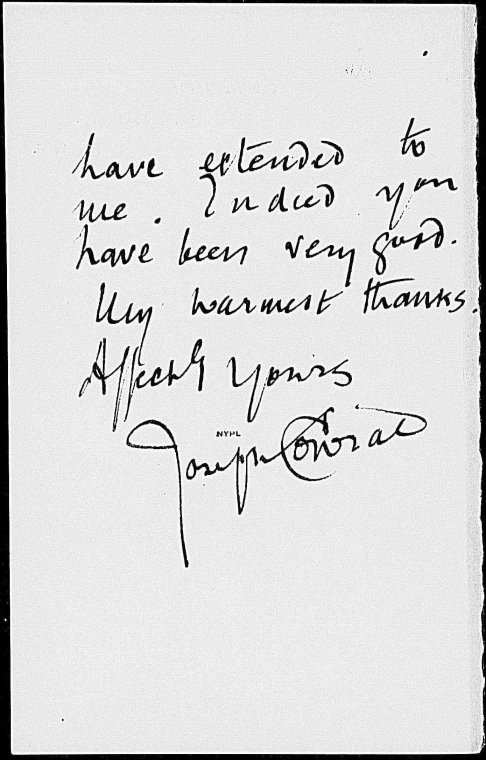 have extended to
me. Indeed you
have been very good.
My warmest thanks.
Affectly Yours
NYPL
Joseph Conrad